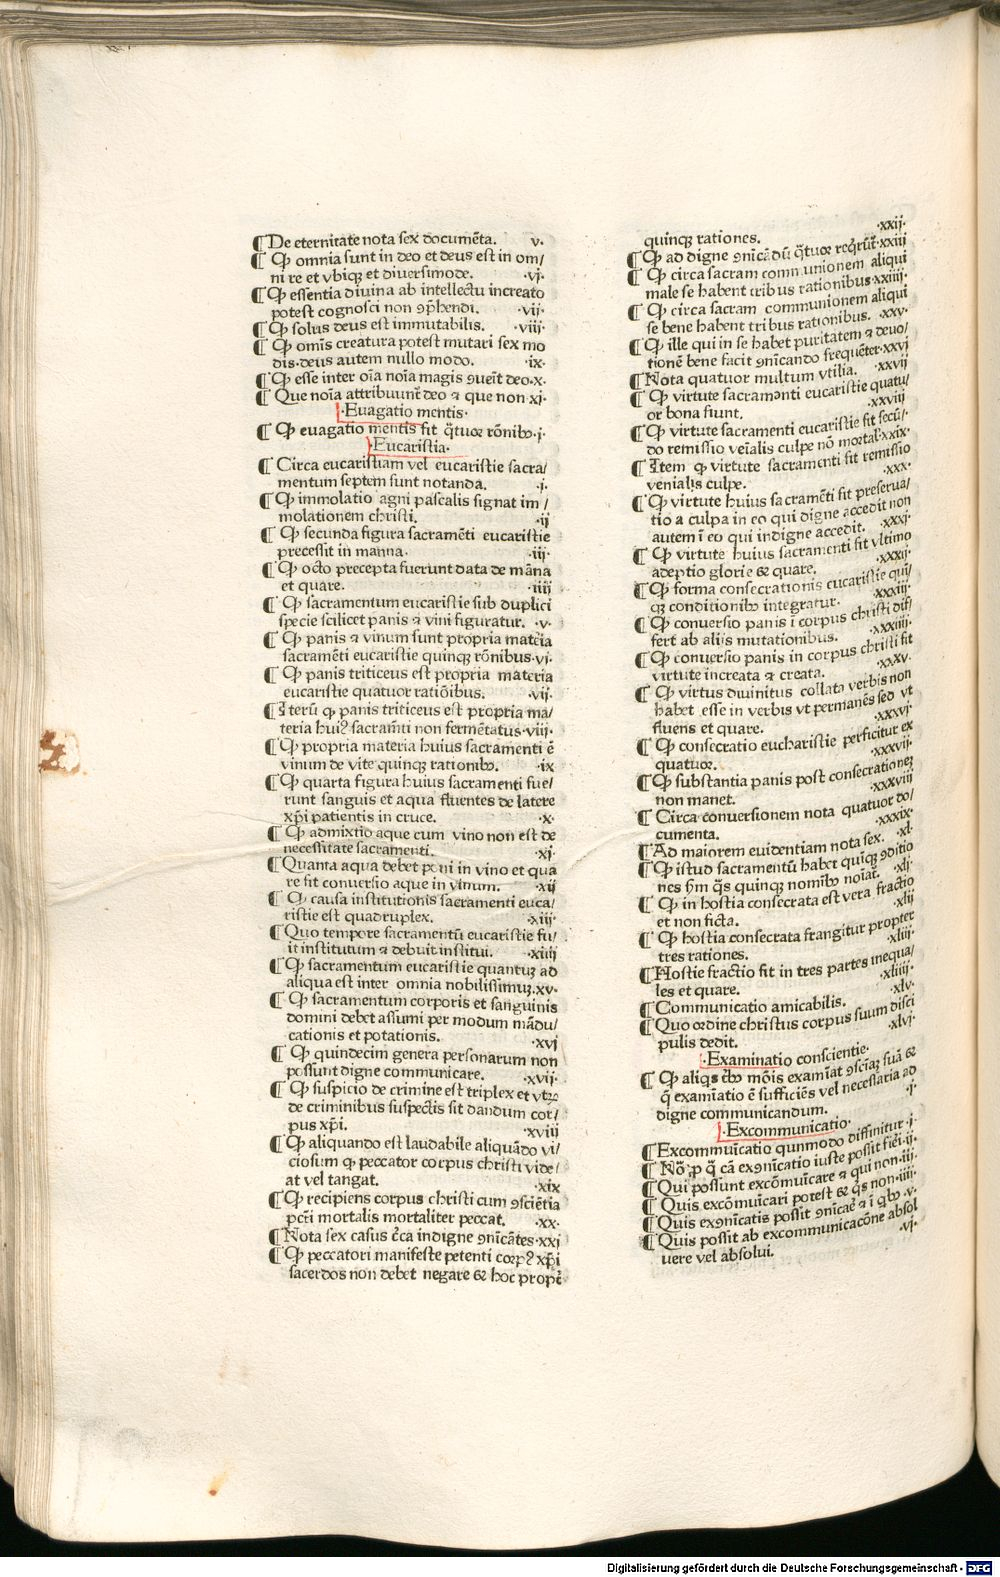 ¶De eternitate nota sex documēta. v.
¶ Ꝙ omnia sunt in deo et deus est in om/
ni re et vbiqꝫ et diuersimode. ·vj·
¶ Ꝙ essentia diuina ab intellectu increato
potest cognosci non ꝯp̄hendi. ·vij·
¶ Ꝙ solus deus est immutabilis. ·viij·
¶ Ꝙ om̄is creatura potest mutari sex mo
dis·deus autem nullo modo. ·ix·
¶ Ꝙ esse inter oīa noīa magis ꝯueīt deo·x·
¶ Que noīa attribuunt̄ deo ⁊ que non·xj·
·Euagatio mentis·
¶ Ꝙ euagatio mentis fit q̄tuor rōnibꝰ·j·
·Eucaristia·
¶ Circa eucaristiam vel eucaristie sacra/
mentum septem sunt notanda. ·j·
¶ Ꝙ immolatio agni pascalis signat im/
molationem christi. ·ij
¶ Ꝙ secunda figura sacramēti eucaristie
precessit in manna· ·iij·
¶ Ꝙ octo precepta fuerunt data de māna
et quare. ·iiij
¶ Ꝙ sacramentum eucaristie sub duplici
specie scilicet panis ⁊ vini figuratur. ·v·
¶ Ꝙ panis ⁊ vinum sunt propria materia
sacramēti eucaristie quinqꝫ rōnibus·vj·
¶ Ꝙ panis triticeus est propria materia
eucaristie quatuor ratiōibus. ·vij·
¶Iterū ꝙ panis triticeus est propria ma/
teria huiꝰ sacram̄ti non fermētatus·viij·
¶ Ꝙ propria materia huius sacramenti ē
vinum de vite quinqꝫ rationibꝰ. ·ix
¶ Ꝙ quarta figura huius sacramenti fue/
runt sanguis et aqua fluentes de latere
xp̄i patientis in cruce. ·x·
¶ Ꝙ admixtio aque cum vino non est de
necessitate sacramenti. ·xj·
¶Quanta aqua debet poni in vino et qua
re fit conuersio aque in vinum. ·xij
¶ Ꝙ causa institutionis sacramenti euca/
ristie est quadruplex. ·xiij·
¶Quo tempore sacramentū eucaristie fu/
it institutum ⁊ debuit institui. ·xiiij
¶ Ꝙ sacramentum eucaristie quantuꝫ ad
aliqua est inter omnia nobilissimuꝫ·xv·
¶ Ꝙ sacramentum corporis et sanguinis
domini debet assumi per modum mādu/
cationis et potationis. ·xvj
¶ Ꝙ quindecim genera personarum non
possunt digne communicare. ·xvij·
¶ Ꝙ suspicio de crimine est triplex et vtꝝ
de criminibus suspectis sit dandum cor/
pus xp̄i. ·xviij
¶ Ꝙ aliquando est laudabile aliquādo vi/
ciosum ꝙ peccator corpus christi vide/
at vel tangat. ·xix
¶ Ꝙ recipiens corpus christi cum ꝯsciētia
pcti mortalis mortaliter peccat. ·xx·
¶Nota sex casus c̄ca indigne ꝯnicātes·xxj
¶ Ꝙ peccatori manifeste petenti corpꝰ xp̄i
sacerdos non debet negare & hoc propt̄
quinqꝫ rationes. ·xxij·
¶ Ꝙ ad digne ꝯnicādū q̄tuor reqrūt̄·xxiij
¶ Ꝙ circa sacram communionem aliqui
male se habent tribus rationibus·xxiiij·
¶ Ꝙ circa sacram communionem aliqui
se bene habent tribus rationibus. ·xxv·
¶ Ꝙ ille qui in se habet puritatem ⁊ deuo/
tionē bene facit ꝯnicando frequēter·xxvj
¶Nota quatuor multum vtilia. ·xxvij
¶ Ꝙ virtute sacramenti eucaristie quatu/
or bona fiunt. ·xxviij
¶ Ꝙ virtute sacramenti eucaristie fit secū/
do remissio veīalis culpe nō mortal·xxix·
¶Item ꝙ virtute sacramenti fit remissio
venialis culpe. ·xxx·
¶ Ꝙ virtute huius sacramēti fit preserua/
tio a culpa in eo qui digne accedit non
autem ī eo qui indigne accedit. ·xxxj·
¶ Ꝙ virtute huius sacramenti fit vltimo
adeptio glorie & quare. ·xxxij·
¶ Ꝙ forma consecrationis eucaristie qui/
qꝫ conditionibꝰ integratur. ·xxxiij·
¶ Ꝙ conuersio panis ī corpus christi dif/
fert ab aliis mutationibus. ·xxxiiij·
¶ Ꝙ conuersio panis in corpus christi fit
virtute increata ⁊ creata. ·xxxv·
¶ Ꝙ virtus diuinitus collata verbis non
habet esse in verbis vt permanēs sed vt
fluens et quare. ·xxxvj·
¶ Ꝙ consecratio eucharistie perficitur ex
quatuor. ·xxxvij·
¶ Ꝙ substantia panis post consecrationeꝫ
non manet. ·xxxviij
¶ Circa conuersionem nota quatuor do/
cumenta. ·xxxix·
¶Ad maiorem euidentiam nota sex. ·xl·
¶ Ꝙ istud sacramentū habet quiqꝫ ꝯditio
nes ẜm q̄s quinqꝫ nomībꝰ noīat̄. ·xlj·
¶ Ꝙ in hostia consecrata est vera fractio
et non ficta. ·xlij
¶ Ꝙ hostia consecrata frangitur propter
tres rationes. ·xliij·
¶Hostie fractio fit in tres partes inequa/
les et quare. ·xliiij·
¶Communicatio amicabilis. ·xlv·
¶Quo ordine christus corpus suum disci
pulis dedit. ·xlvj·
·Examinatio conscientie·
¶ Ꝙ aliqs mōis examīat ꝯsciāꝫ suā &
q̄ examīatio ē sufficiēs vel necessaria ad
digne communicandum. ·j·
·Excommunicatio·
¶Excommuīcatio qunmodo diffinitur·j·
¶ Nō ꝓ q̄ cā exꝯnicatio iuste possit fieri·ij·
¶Qui possunt excōmuīcare ⁊ qui non·iij·
¶ Quis excōmuīcari potest & q̄s non·iiij·
¶Quis exꝯnicatis possit ꝯnicare ⁊ ī qbꝰ·v·
¶Quis possit ab excommunicacōne absol
uere vel absolui. ·vj·
Digitalisierung gefördert durch die Deutsche Forschungsgemeinschaft - DFG